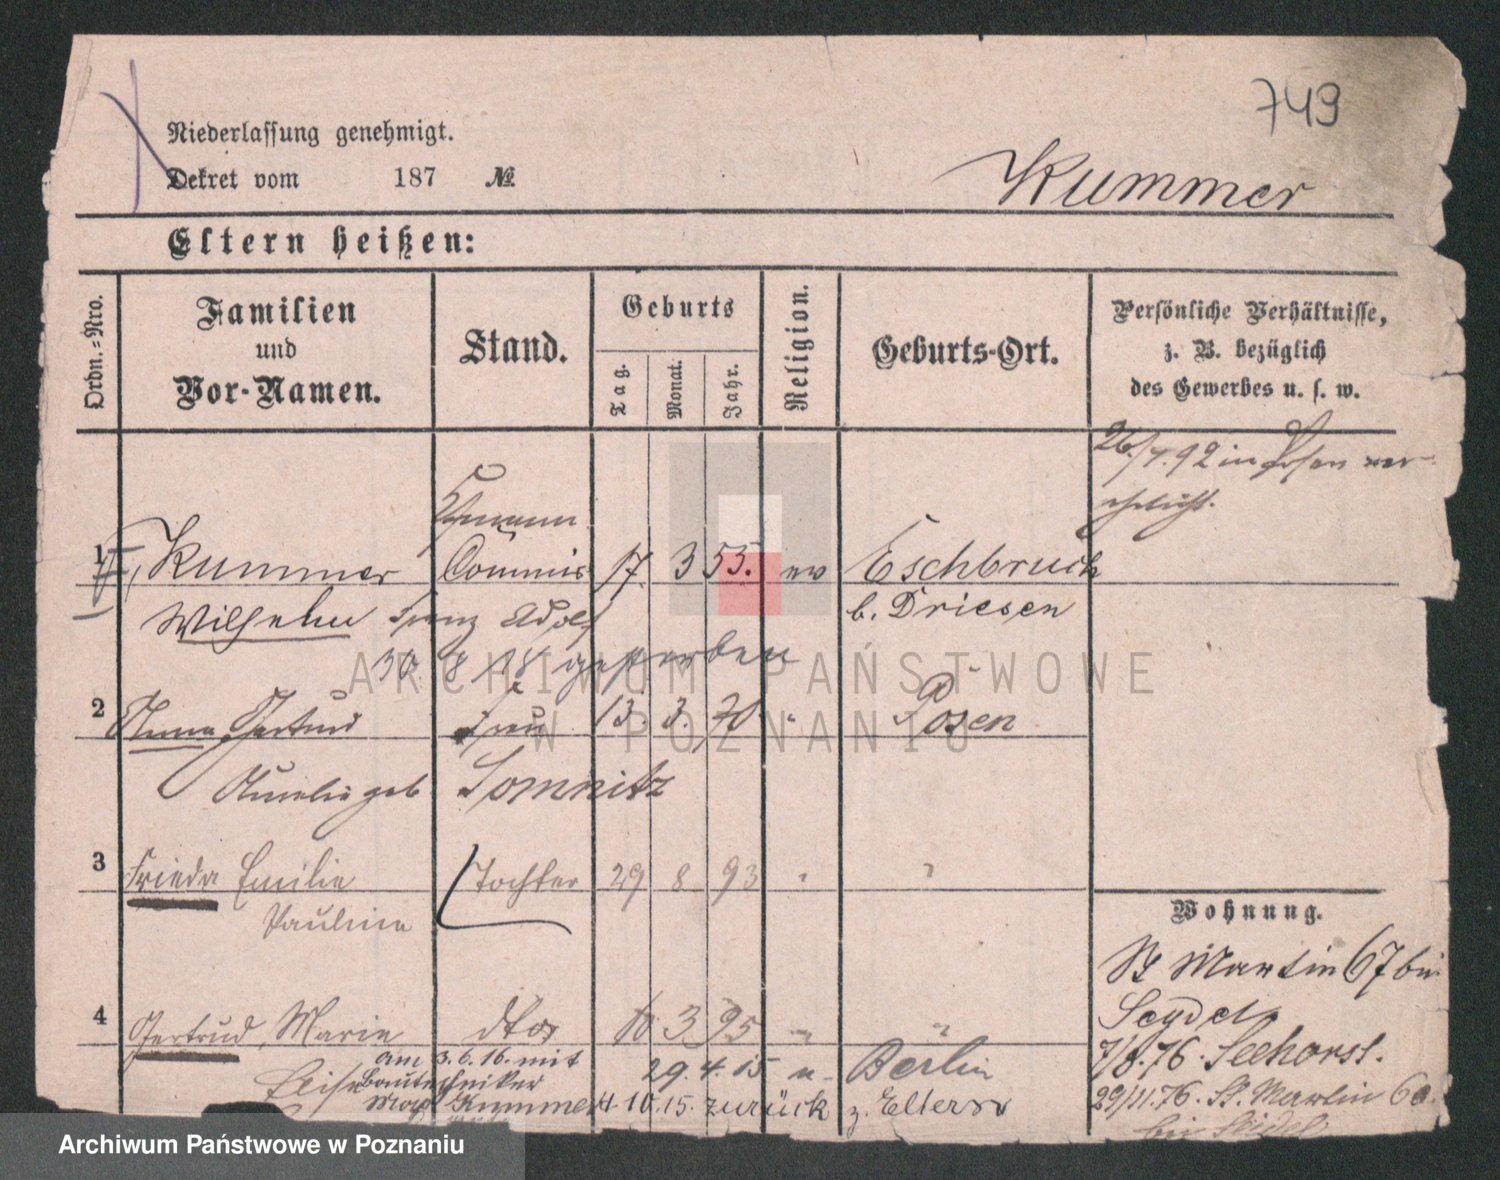 749
Niederlassung genehmigt.
Dekret vom 187 №
Kummer
Eltern heißen:
Ordn.-Nro.
Familien und Vor-Namen.
Stand.
Geburts
Tag.
Monat.
Jahr.
Religion.
Geburts-Ort.
Persönliche Verhältnisse, z. B. bezüglich des Gewerbes u. s. w.
26/4.92 in Posen ver-
ehelicht.
1 Kummer Commis 17. 3 55. ev Eschbruch
Wilhelm Franz Adolf b. Driesen
30. 8 18 gestorben
2 Anna Gertrud Frau 13. 3. 70 " Posen
Amalie geb Somnitz
3 Frieda Emilie Tochter 29 8 93 " "
Pauline
Wohnung.
St Martin 67 bei
Seydel
4 Gertrud, Marie dto 10 3 95 " "
7/8.76. Seehorst.
Elise am 3.6.16. mit 29.4.15 n. Berlin
Bautechniker
29/11.76. St. Martin 60.
Kummer 4.10.15. zurück z. Eltern
bei Seidel
ARCHIWUM PAŃSTWOWE
W POZNANIU
Archiwum Państwowe w Poznaniu